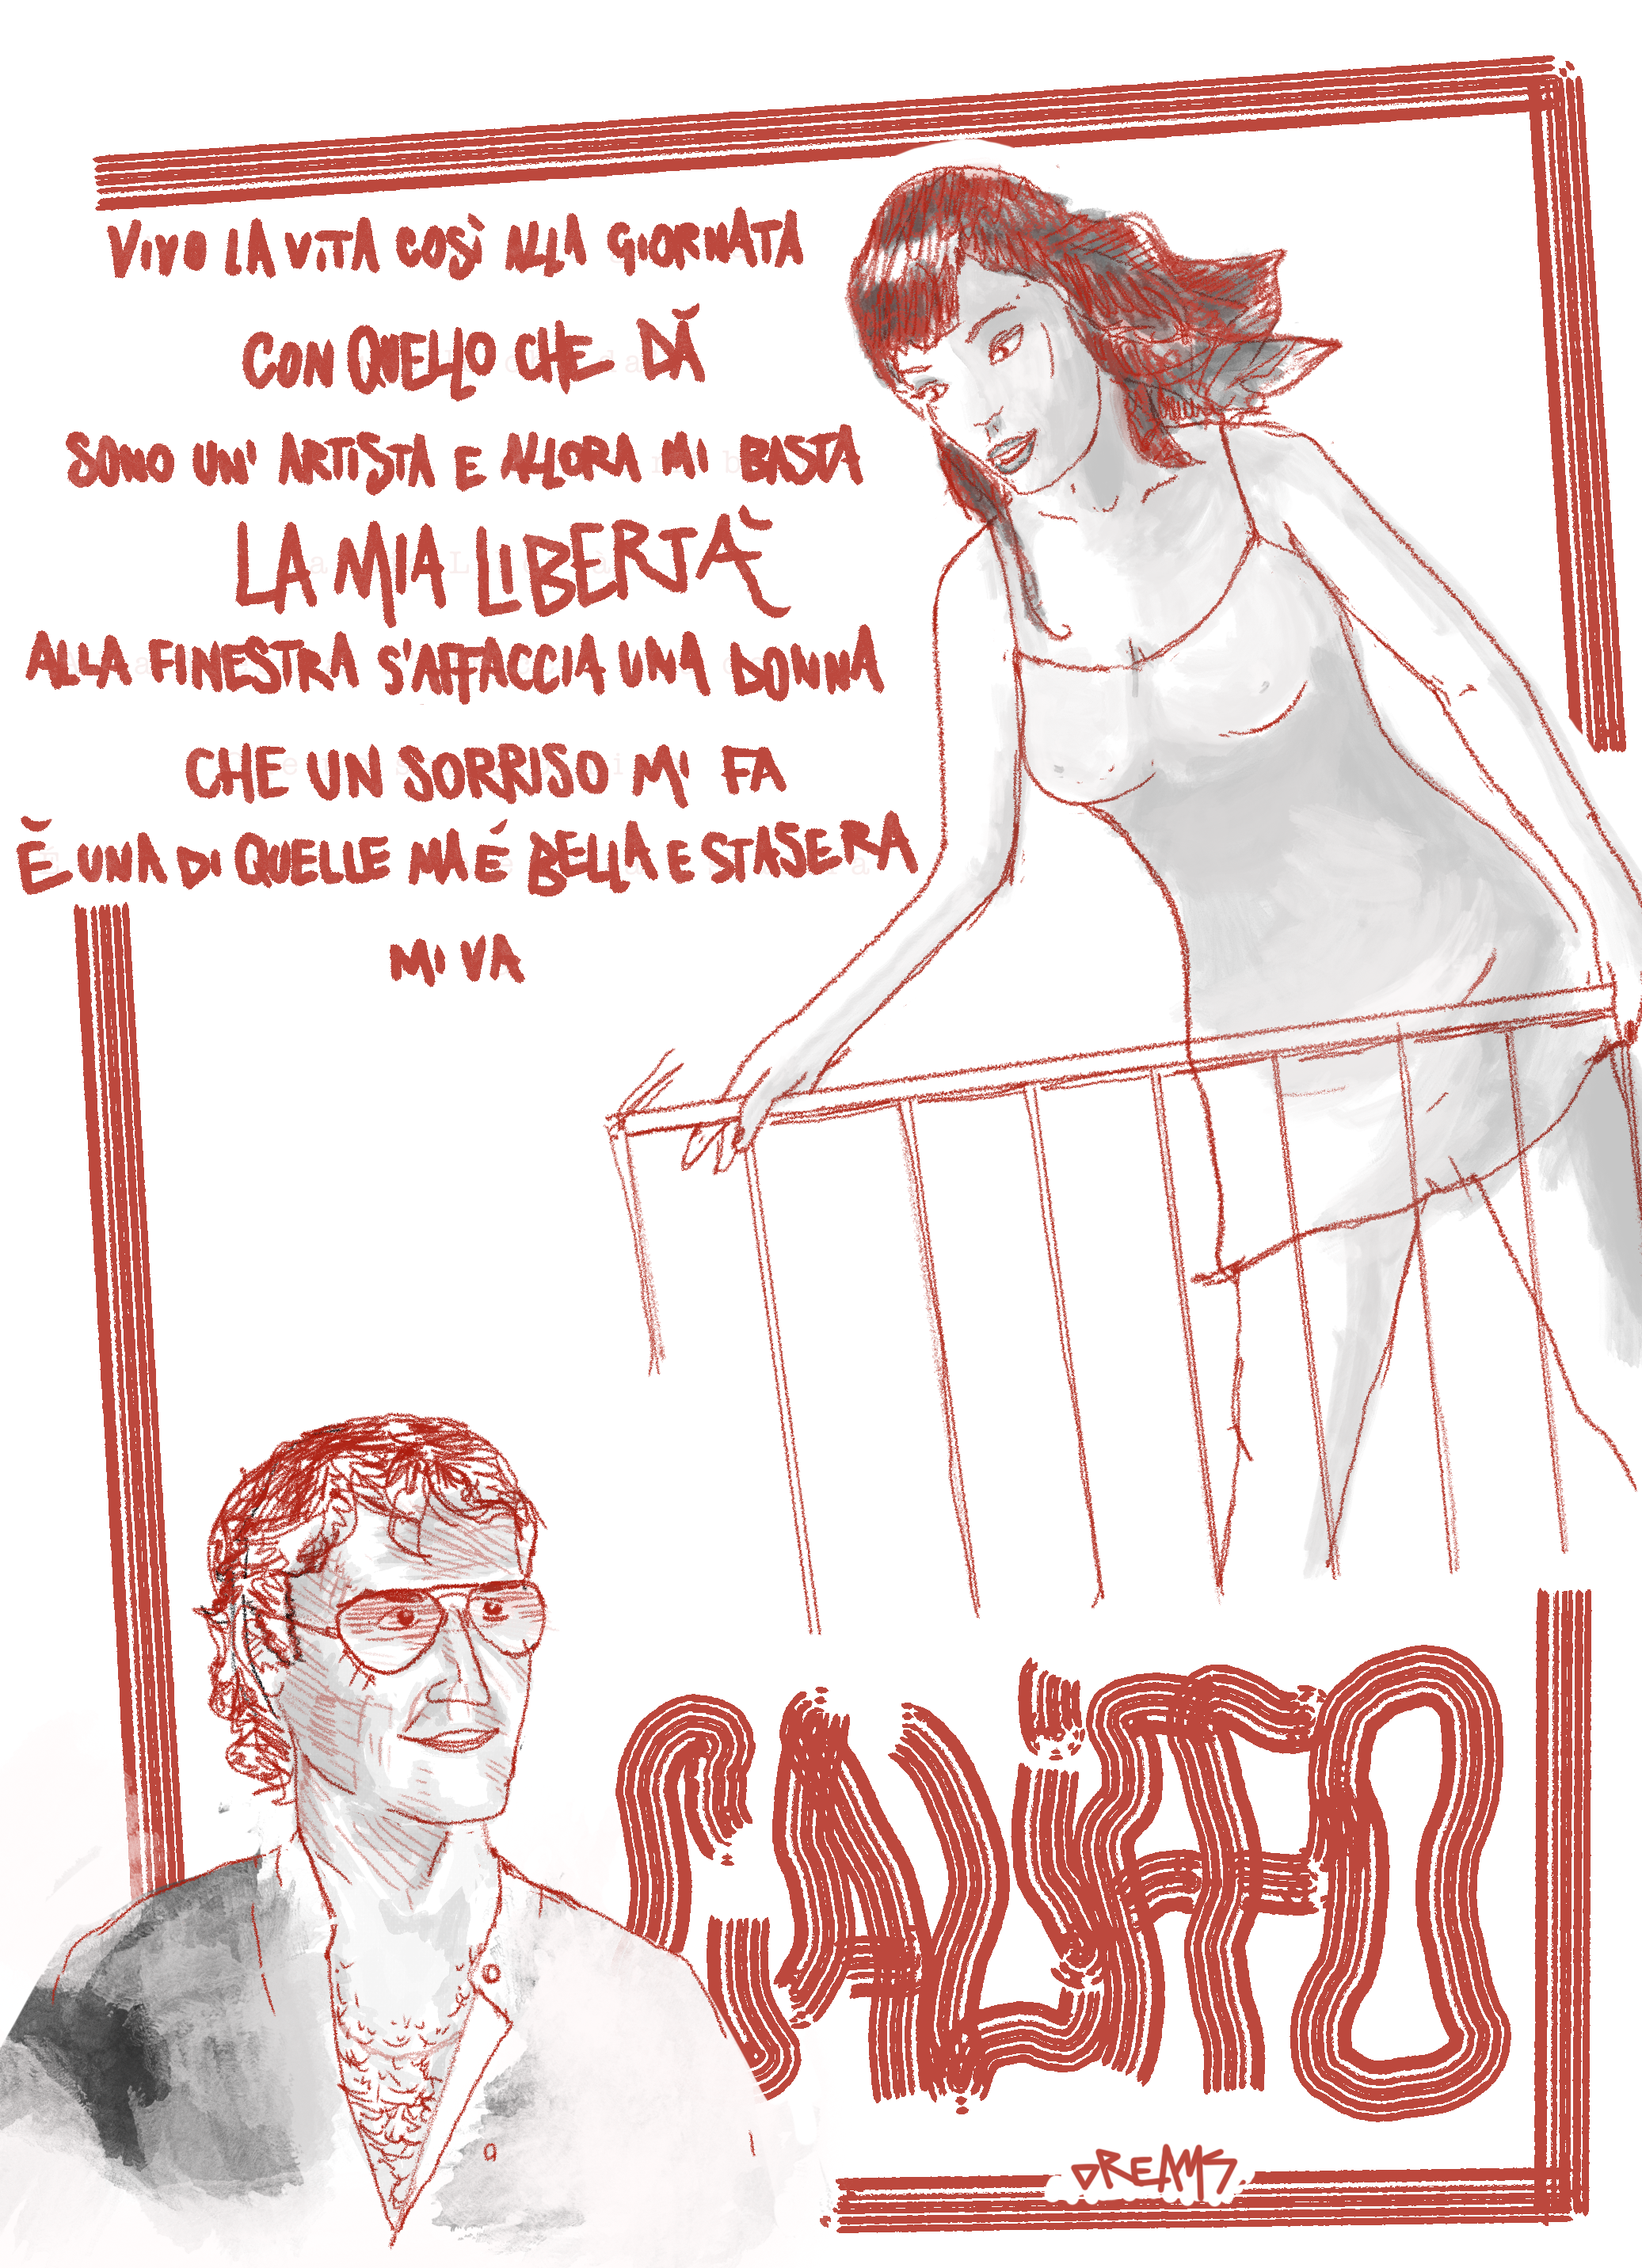 VIVO LA VITA COSÌ ALLA GIORNATA
CON QUELLO CHE DĂ
SONO UN' ARTISTA E ALLORA MI BASTA
LA MIA LIBERTÀ
ALLA FINESTRA S'AFFACCIA UNA DONNA
CHE UN SORRISO MI FA
Ĕ UNA DI QUELLE MA É BELLA E STASERA
MI VA
CALIFFO
DREAMS